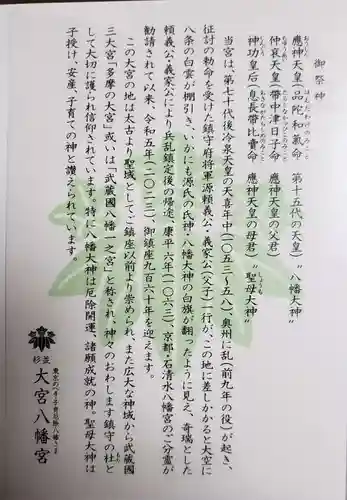 御祭神
應神天皇(品陀和氣命　第十五代の天皇)〝八幡大神〟
おうじん
ほむだわけのみこと
仲哀天皇(帶中津日子命　應神天皇の父君)
ちゅうあい
たらしなかつひこのみこと
神功皇后(息長帶比賣命　應神天皇の母君)〝聖母大神〟
じんぐう
おきながたらしひめのみこと
しょうも
当宮は第七十代後冷泉天皇の天喜年中(一〇五三〜五八)、奥州に乱(前九年の役)が起き、
征討の勅命を受けた鎮守府将軍源頼義公・義家公(父子)一行が、この地に差しかかると大空に
八条の白雲が棚引き、いかにも源氏の氏神・八幡大神の白旗が翻ったように見え、奇瑞とした
頼義公・義家公により、兵乱鎮定後の帰途、康平六年(一〇六三)、京都・石清水八幡宮のご分霊が
勧請されて以来、令和五年(二〇二三)、御鎮座九百六十年を迎えます。
この大宮の地は太古より聖域としてご鎮座以前より崇められ、また広大な神域から武蔵国
三大宮「多摩の大宮」或いは「武蔵國八幡一之宮」と称され、神々のおわします鎮守の杜と
もり
して大切に護られ信仰されています。特に八幡大神は厄除開運、諸願成就の神。聖母大神は
子授け、安産、子育ての神と讃えられています。
東京のへそ・子育厄除八幡さま
杉並
大宮八幡宮